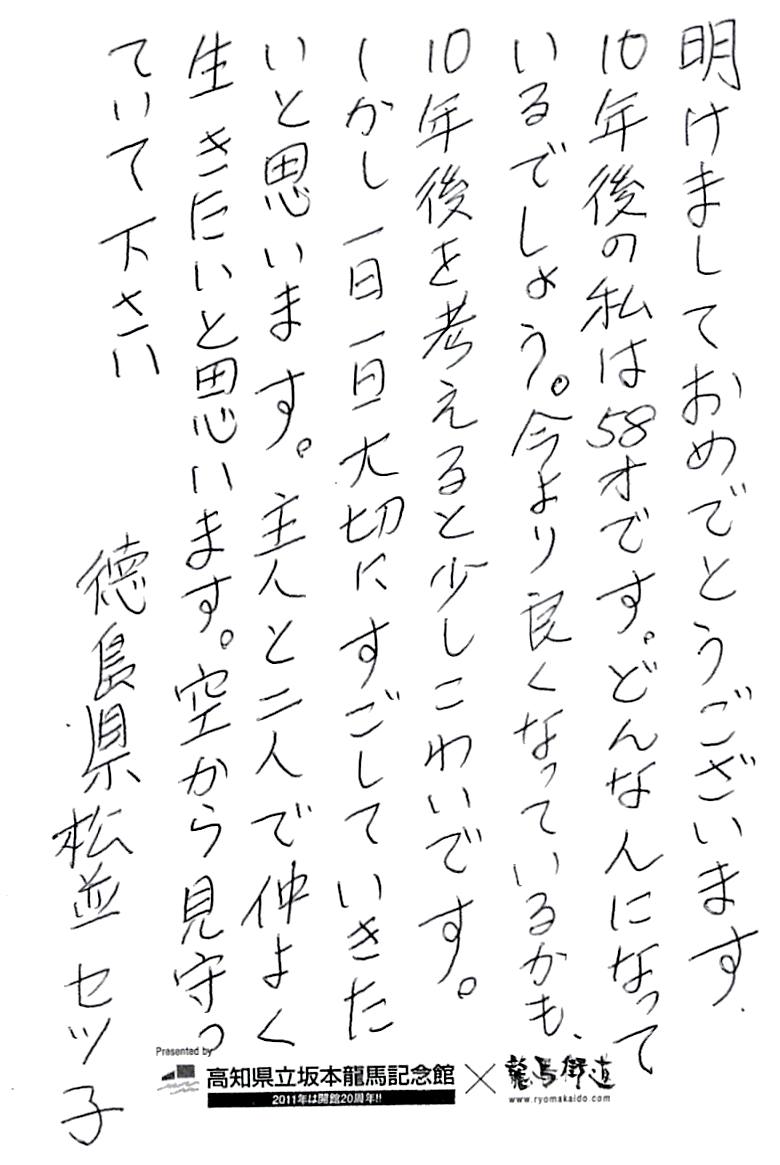 明けましておめでとうございます.
10年後の私は58才です。どんなんになって
いるでしょう。今より良くなっているかも、
10年後を考えると少しこわいです。
しかし一日一日大切にすごしていきた
いと思います。主人と二人で仲よく
生きたいと思います。空から見守っ
ていて下さい
徳島県松並セツ子
Presented by
高知県立坂本龍馬記念館
2011年は開館20周年!!
×
龍馬街道
www.ryomakaido.com